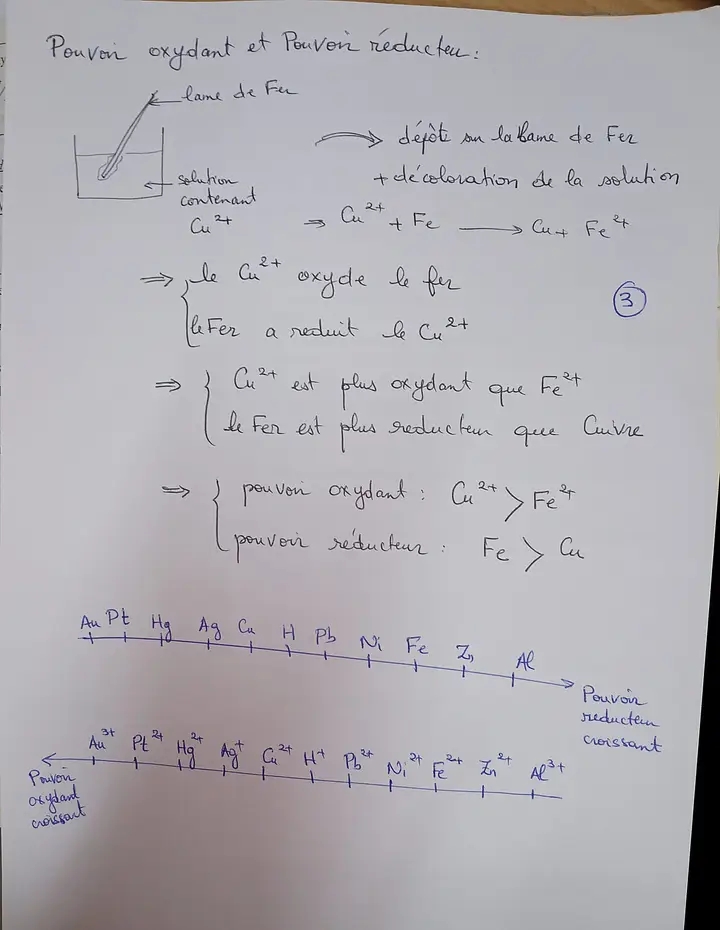 Pouvoir oxydant et Pouvoir réducteur:
lame de Fer
dépôt sur la lame de Fer
+ décoloration de la solution
solution
contenant
Cu²⁺
⇒ Cu²⁺ + Fe ⟶ Cu + Fe²⁺
⇒ { le Cu²⁺ oxyde le fer
le Fer a reduit le Cu²⁺
3
⇒ { Cu²⁺ est plus oxydant que Fe²⁺
le Fer est plus reducteur que Cuivre
⇒ { pouvoir oxydant : Cu²⁺ > Fe²⁺
pouvoir réducteur : Fe > Cu
Au Pt Hg Ag Cu H Pb Ni Fe Zn Al
Pouvoir
reducteur
croissant
Au³⁺ Pt²⁺ Hg²⁺ Ag⁺ Cu²⁺ H⁺ Pb²⁺ Ni²⁺ Fe²⁺ Zn²⁺ Al³⁺
Pouvoir
oxydant
croissant